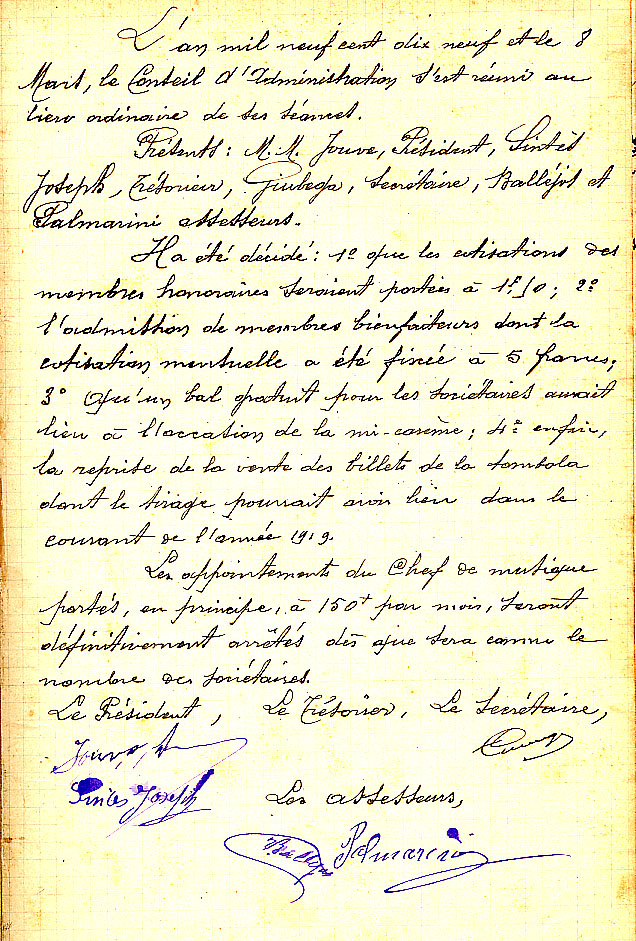 L'an mil neuf cent dix neuf et le 8
Mars, le Conseil d'Administration s'est réuni au
lieu ordinaire de ses séances.
Présents : M.M. Jouve, Président, Sintès
Joseph, Trésorier, Giubega, Secrétaire, Balléjos et
Palmarini assesseurs.
Il a été décidé : 1º que les cotisations des
membres honoraires seraient portées à 1f50 ; 2º
l'admission de membres bienfaiteurs dont la
cotisation mensuelle a été fixée à 5 francs ;
3º Qu'un bal gratuit pour les sociétaires aurait
lieu à l'occasion de la mi-carème ; 4º enfin,
la reprise de la vente des billets de la tombola
dont le tirage pourrait avoir lieu dans le
courant de l'année 1919.
Les appointements du Chef de musique
portés, en principe, à 150f par mois, seront
définitivement arrêtés dès que sera connu le
nombre des sociétaires.
Le Président, Le Trésorier, Le Secrétaire,
Jouve
Sintès Joseph
Les assesseurs,
Ballejos Palmarini